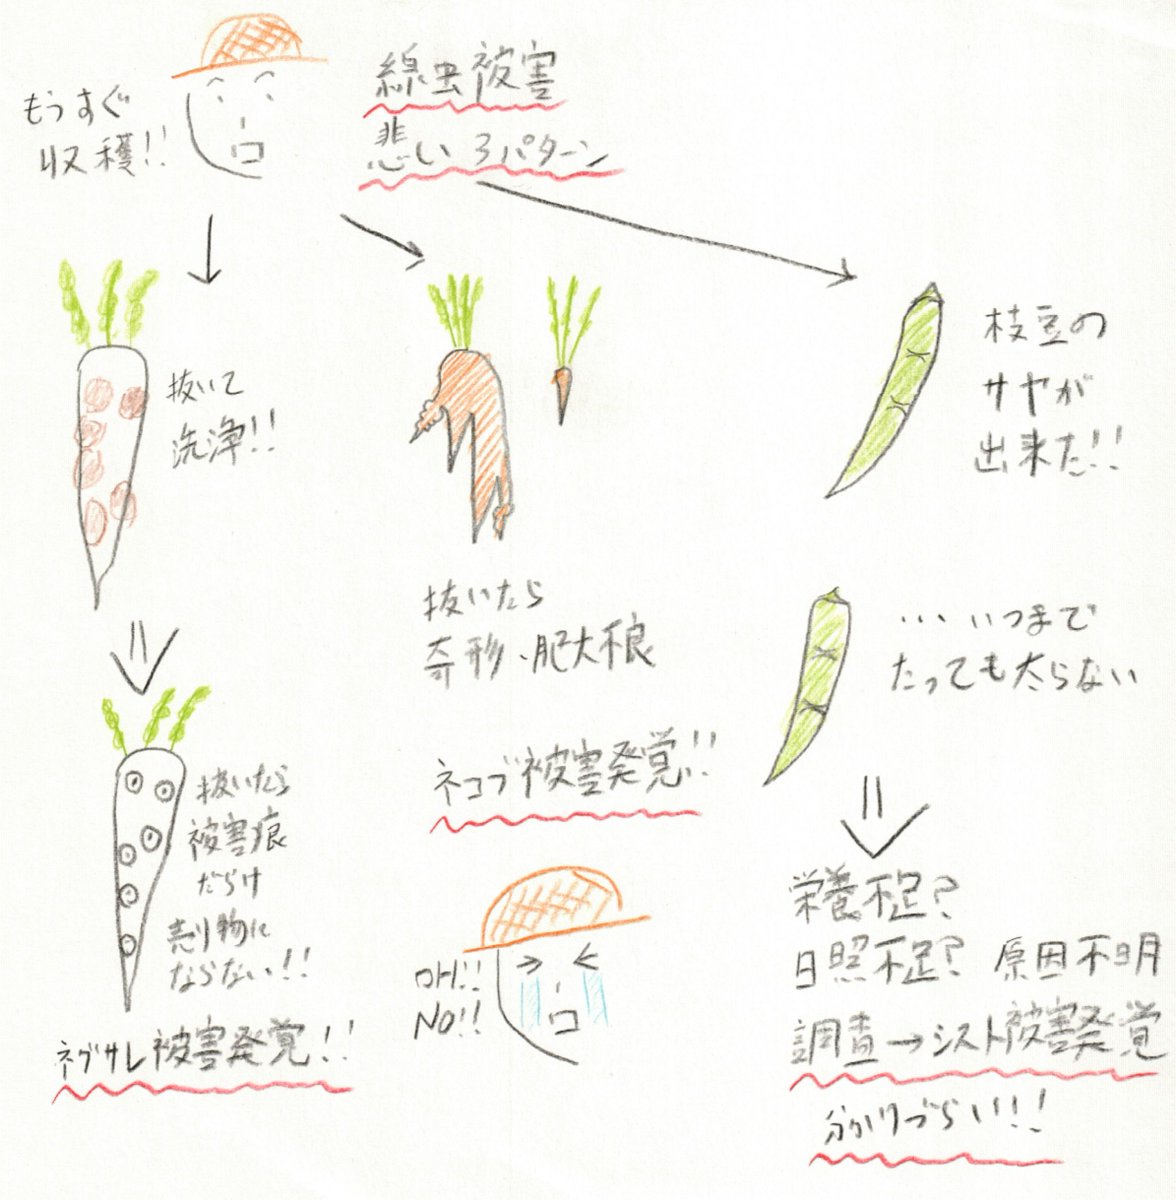 もうすぐ
収穫!!
線虫被害
悲しい3パターン
抜いて
洗浄!!
抜いたら
被害痕
だらけ
売り物に
ならない!!
ネグサレ被害発覚!!
抜いたら
奇形、肥大不良
ネコブ被害発覚!!
OH!!
NO!!
枝豆の
サヤが
出来た!!
...いつまで
たっても太らない
栄養不足?
日照不足? 原因不明
調査→シスト被害発覚
分かりづらい!!